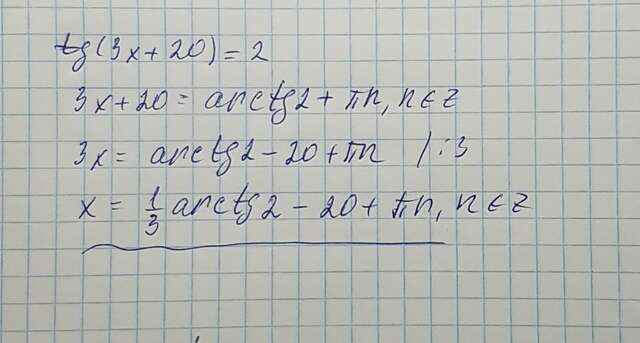 tg(3x+20)=2
3x+20= arctg2+πn, n∈z
3x= arctg2-20+πn /:3
x= 1/3 arctg2-20+πn, n∈z